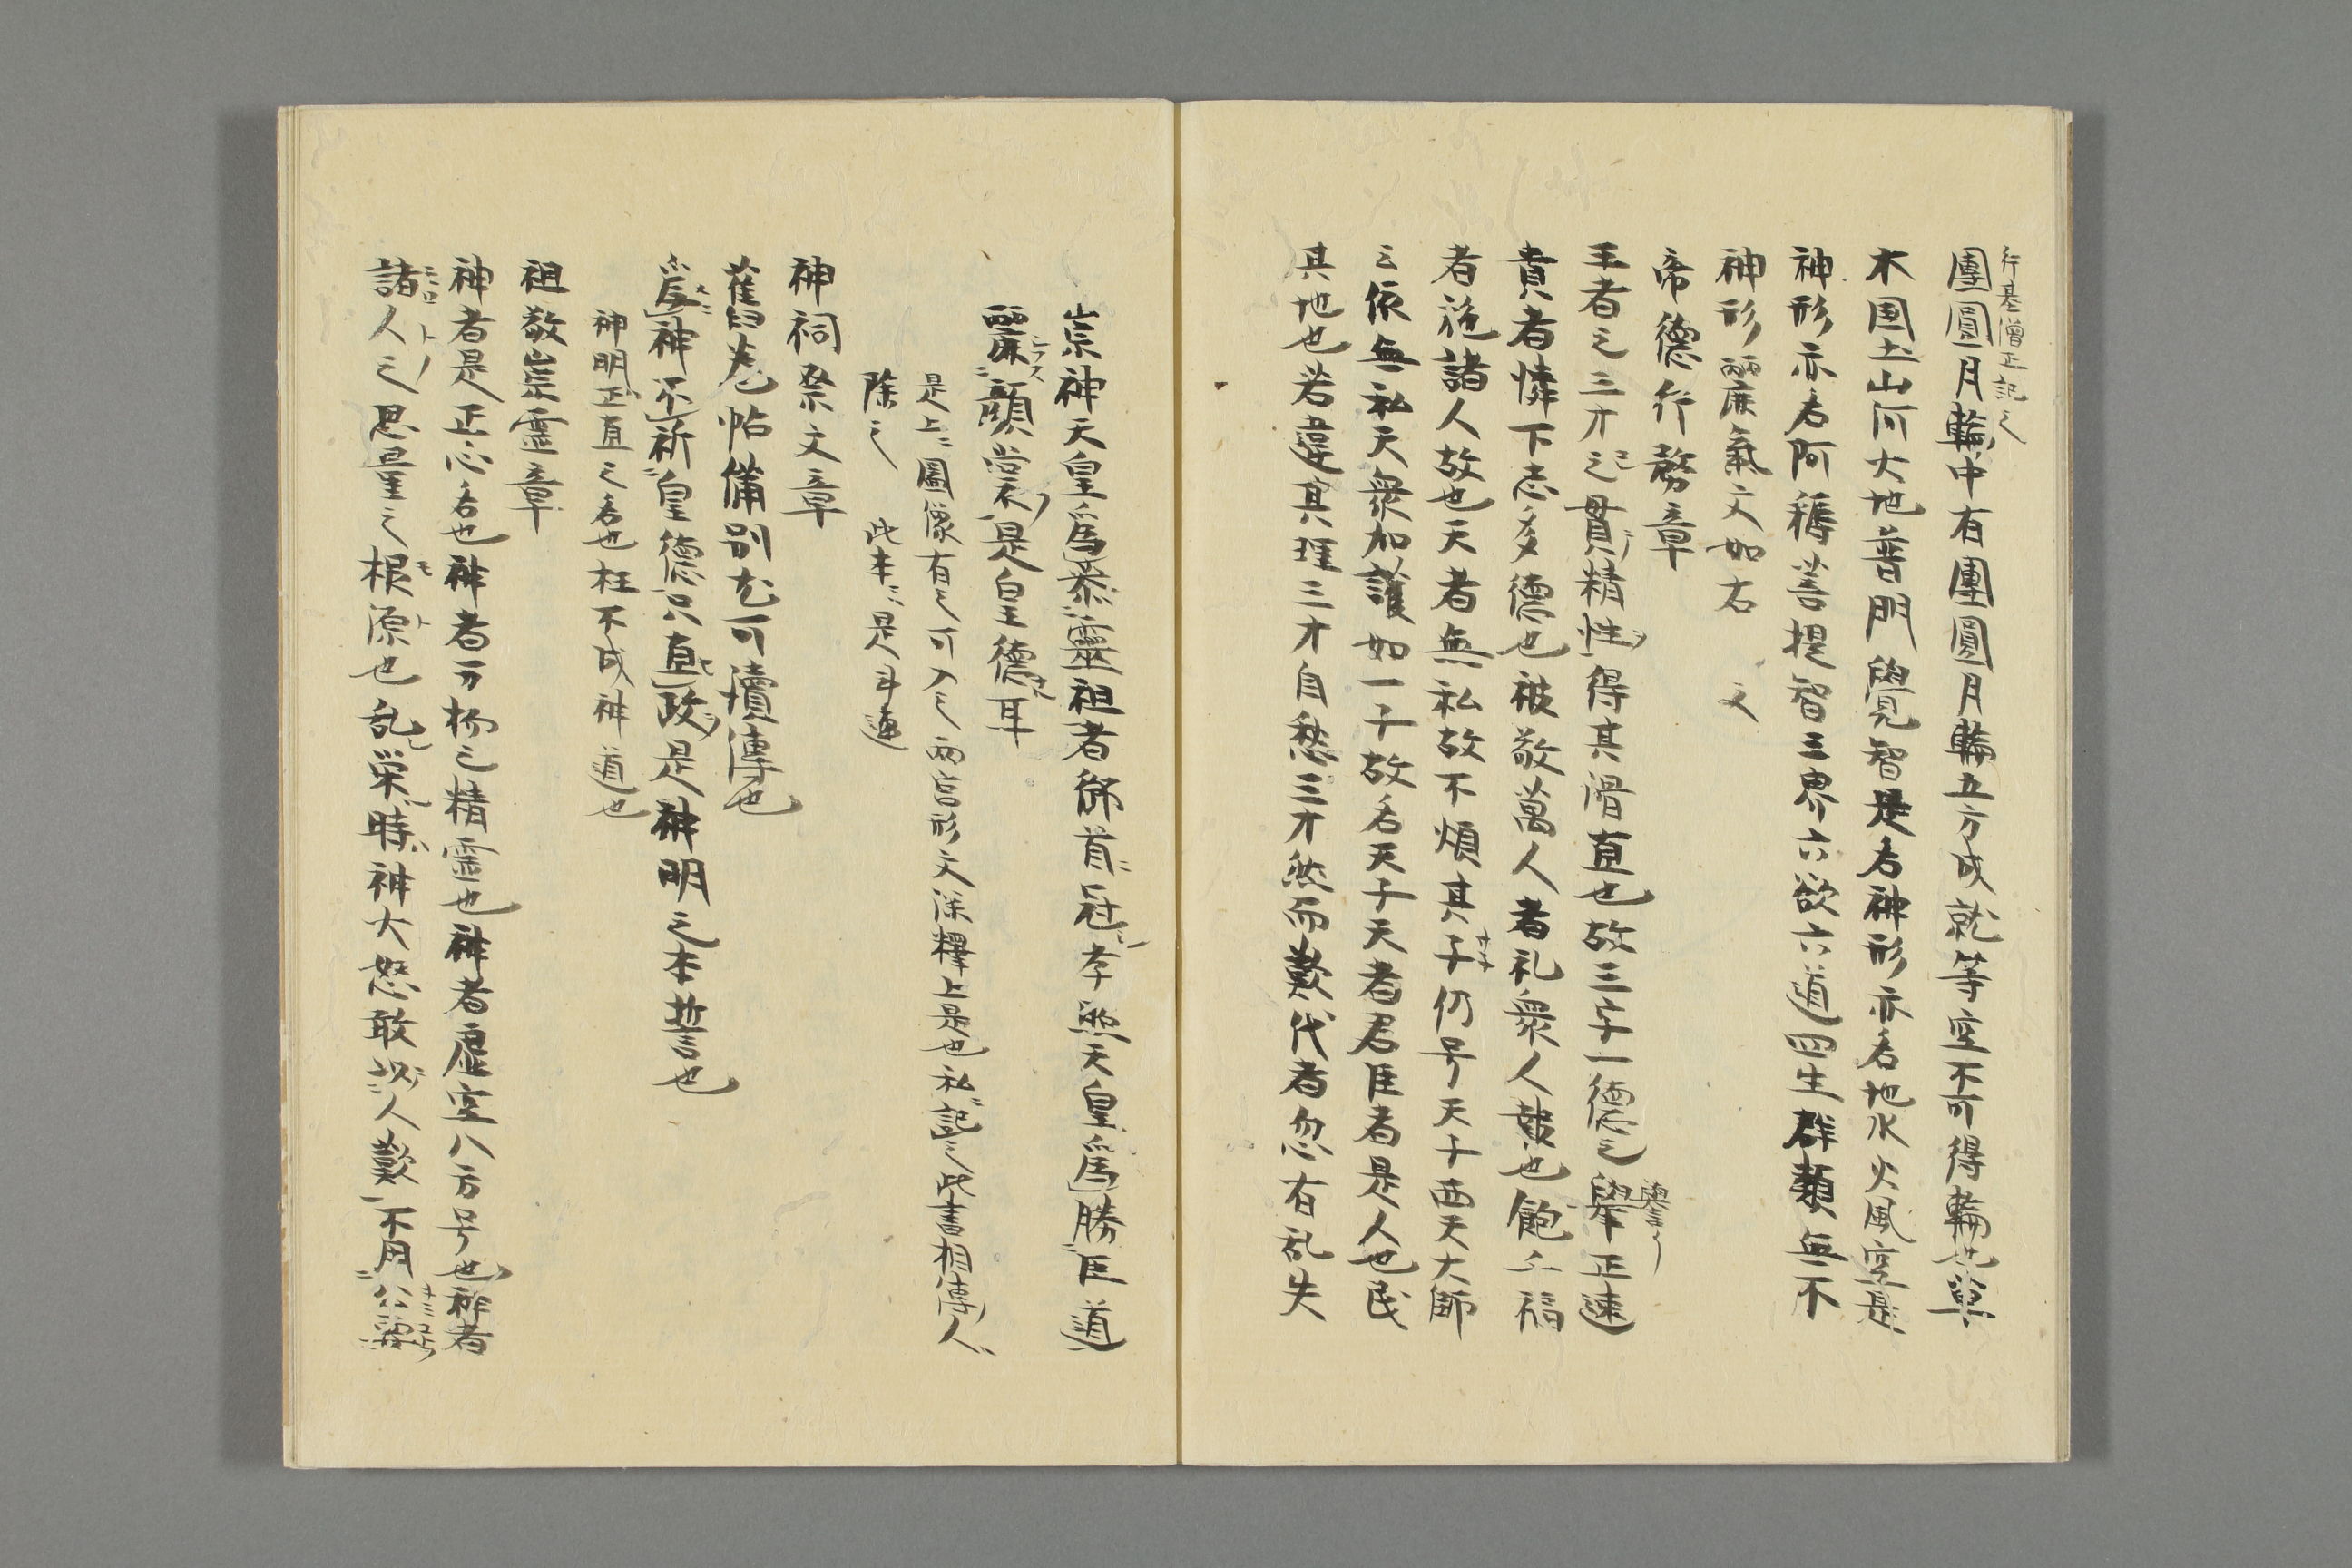 行基僧正記之
團圓月輪中有團圓月輪五方成就等空不可得輪也草
木国土山河大地普門覺智是名神形亦名地水火風空是
神形亦名阿耨菩提智三界六欲六道四生群類無不
神形麗氣文如右 文
帝德行務章
王者之三才之貫精性得其滑直也故三字一德之擧正速
貴者憐下志多德也被敬萬人者礼衆人故也飽上福
者施諸人故也天者無私故不煩其子仍号天子西天大師
云依無私天衆加護如一子故名天子天者君臣者是人也民
其地也若違其理三才自愁三才然而歎代者忽有乱失
崇神天皇爲恭靈祖者御首冠孝照天皇爲勝臣道
顔裳是皇德耳
是上ニ圖像有之可入之兩宮形文深釋上是也私記之此書相傳人
除之 此本ニ是斗連
神祠祭文章
舊卷帖備別尤可讀傳也
爲神不祈皇德只直政是神明之本誓也
神明正直之名也枉不成神道也
祖敬崇靈章
神者是正心名也神者万物之精靈也神者虚空八方号也神者
諸人之思量之根源也乱栄時神大怒敢以人歎不用公